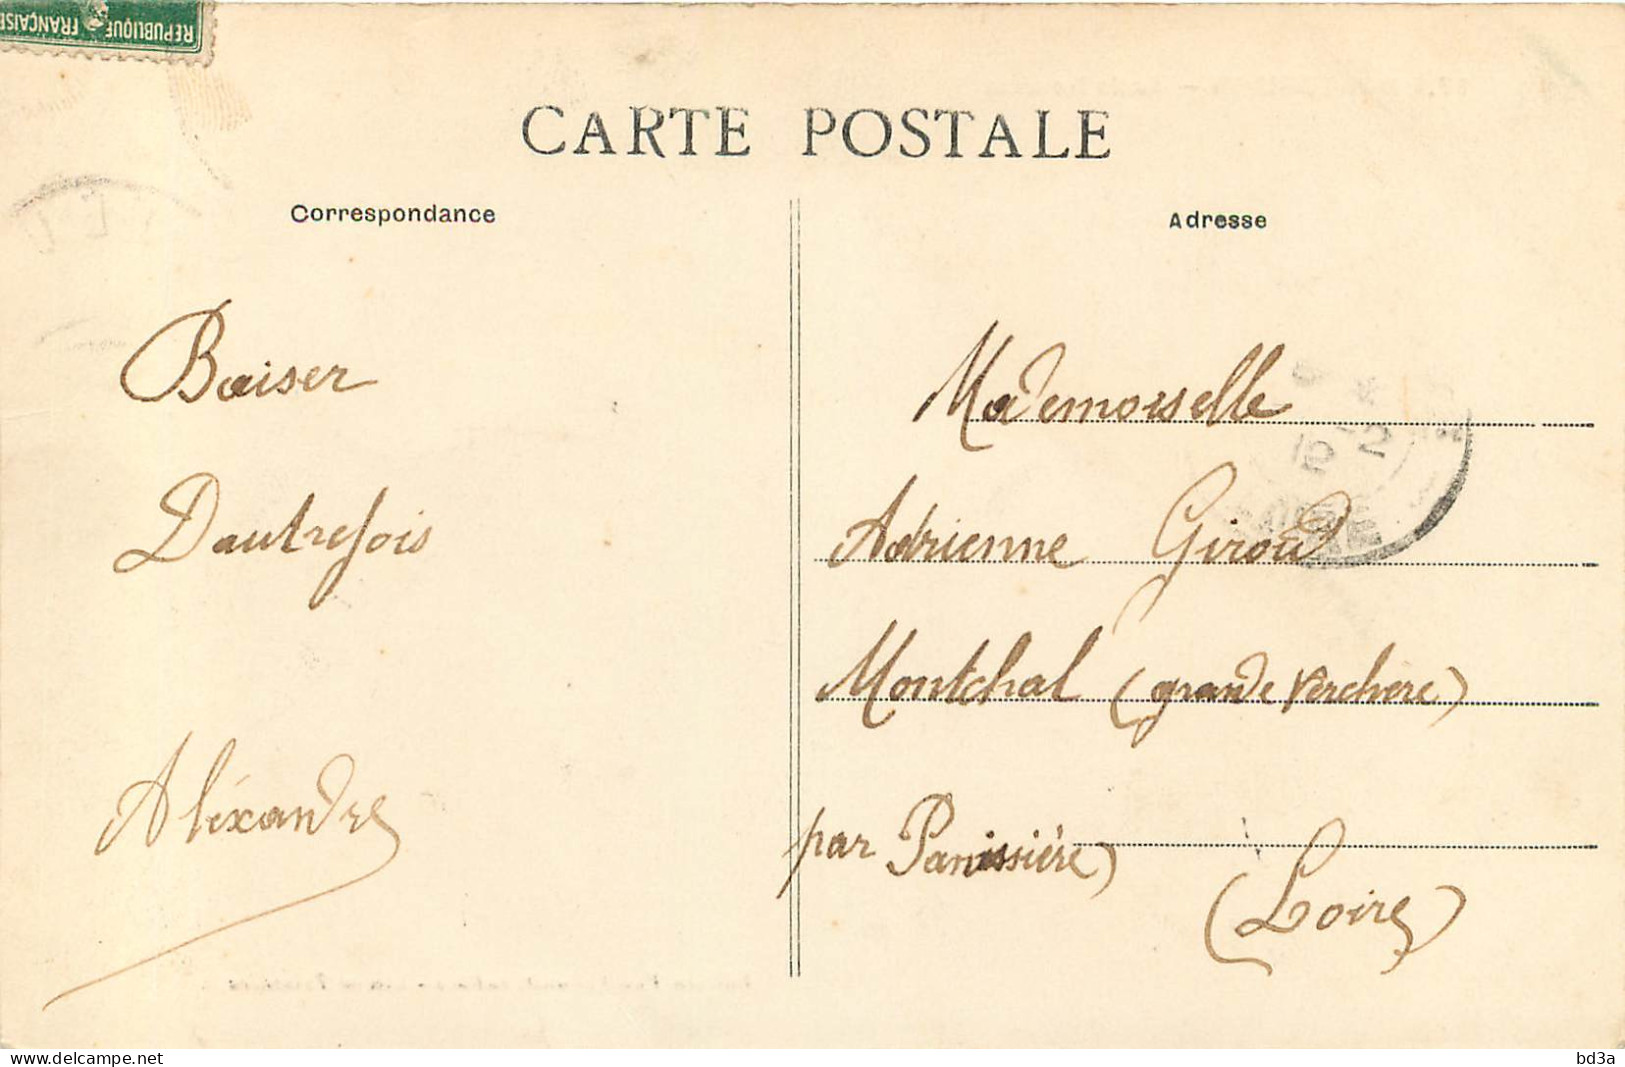 REPUBLIQUE FRANÇAISE
CARTE POSTALE
Correspondance
Adresse
Baiser
Dautrefois
Aléxandre
Mademoiselle
Adrienne Giroud
Montchal (grande Verchère)
par Panissière)
(Loire)
www.delcampe.net
bd3a